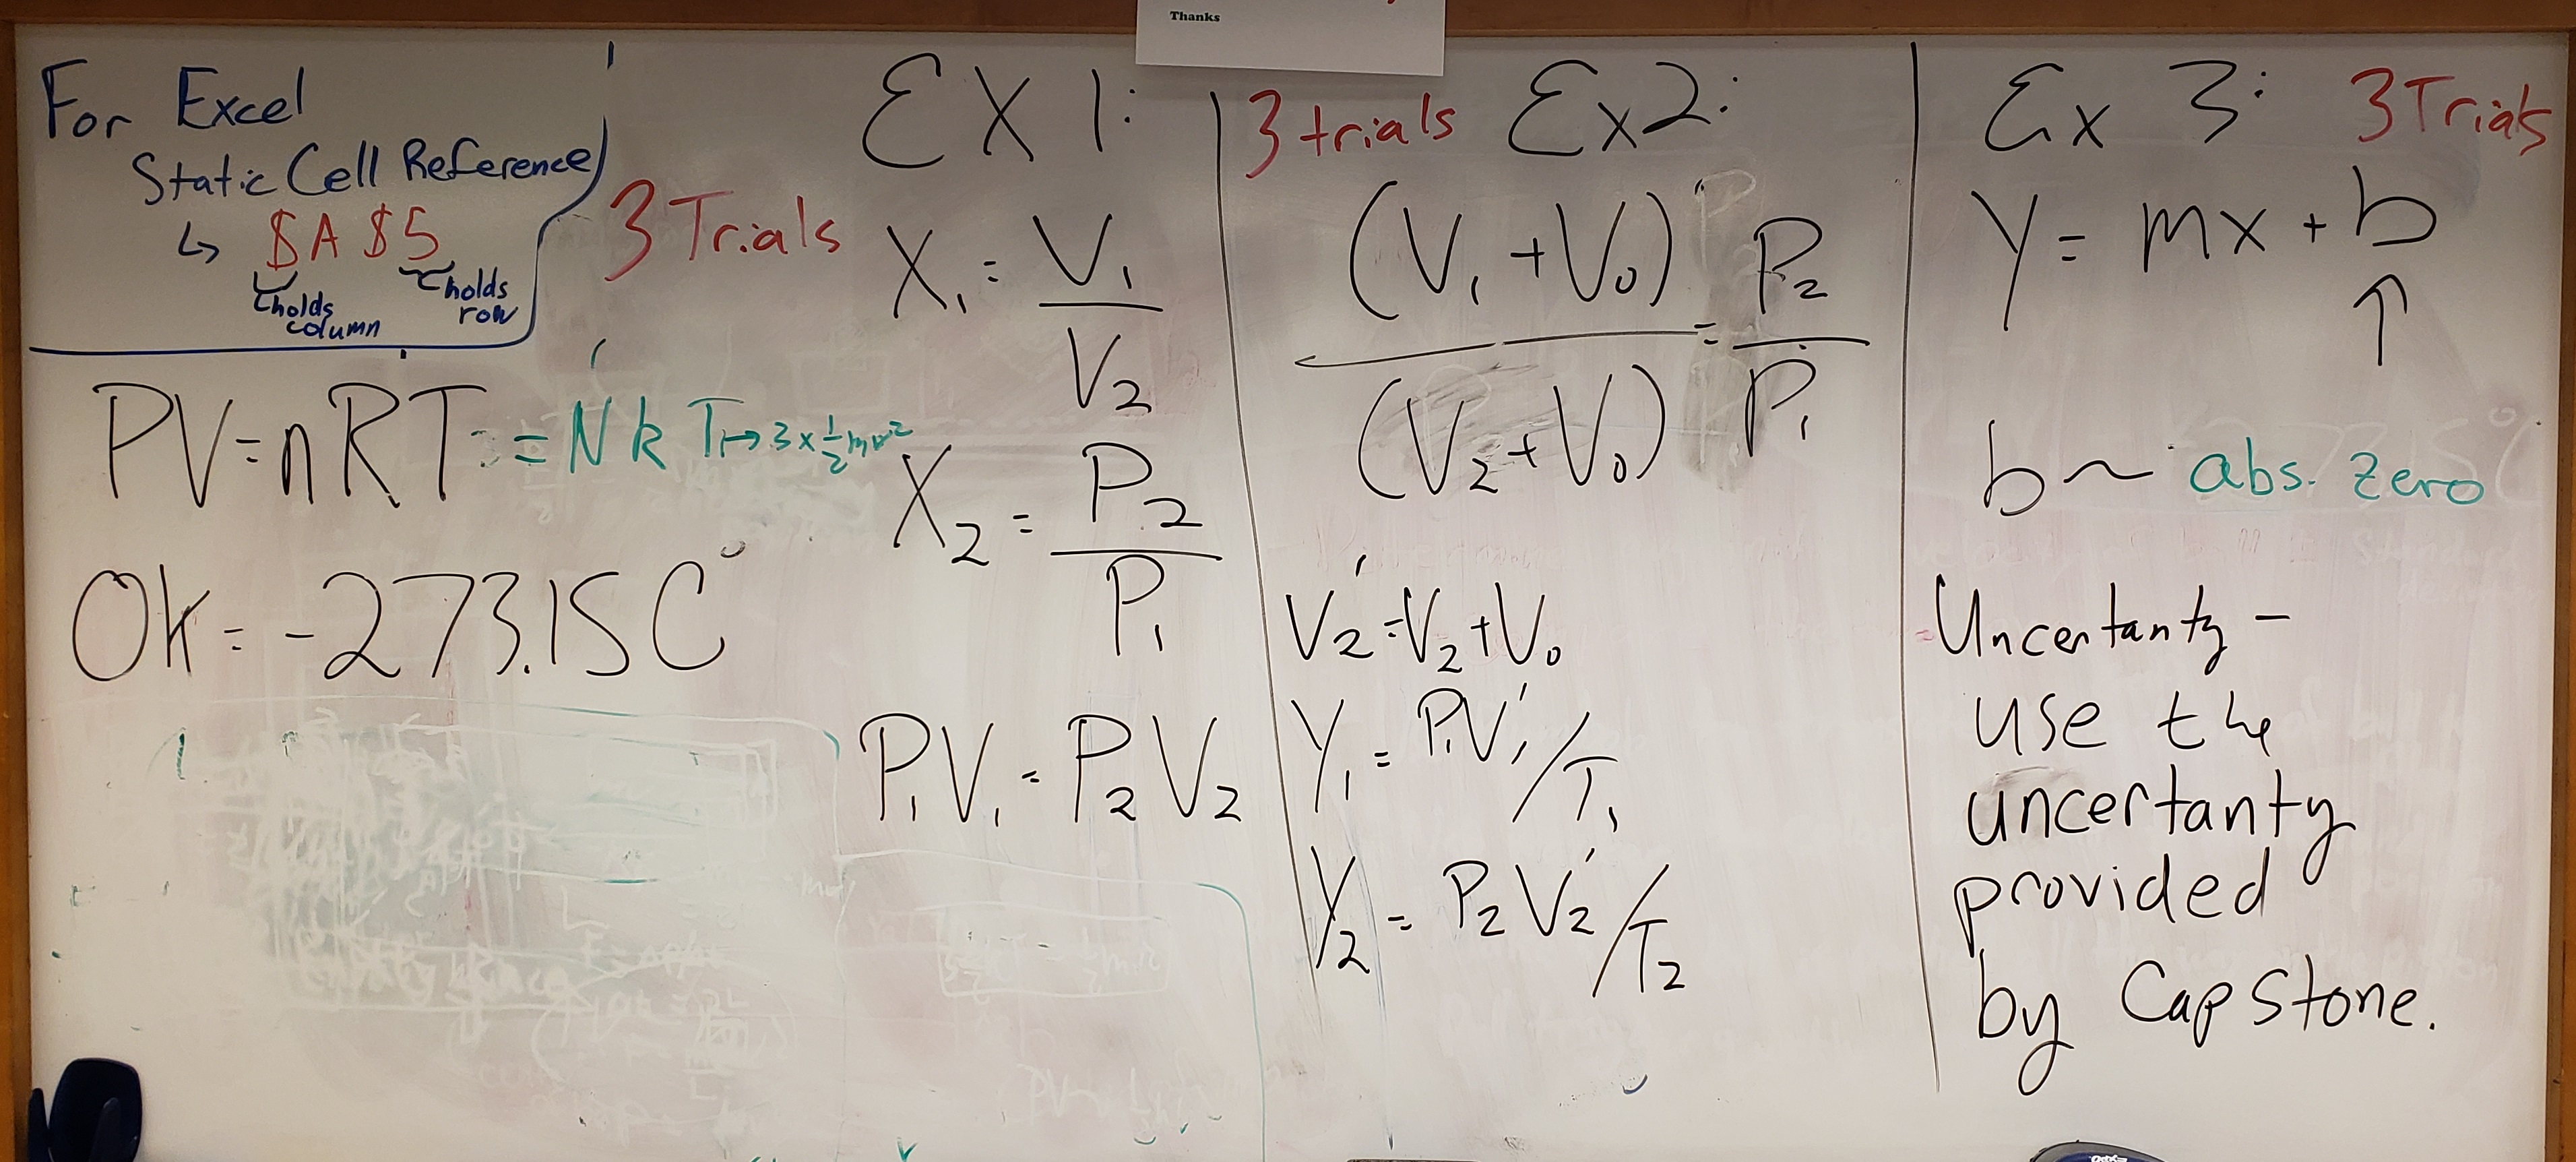 Thanks
For Excel
Static Cell Reference
↳ $A $5
holds column
holds row
PV = nRT = N k T ↦ 3 x 1/2 mv²
0k = -273.15 C°
3 Trials
EX 1:
X₁ = V₁/V₂
X₂ = P₂/P₁
P₁V₁ = P₂V₂
3 trials Ex2:
(V₁ + V₀)/(V₂ + V₀) = P₂/P₁
V₂' = V₂ + V₀
Y₁ = P₁V₁'/T₁
Y₂ = P₂V₂'/T₂
Ex 3: 3 Trials
y = mx + b
↑
b ~ abs. zero
Uncertanty -
use the
uncertanty
provided
by Capstone.